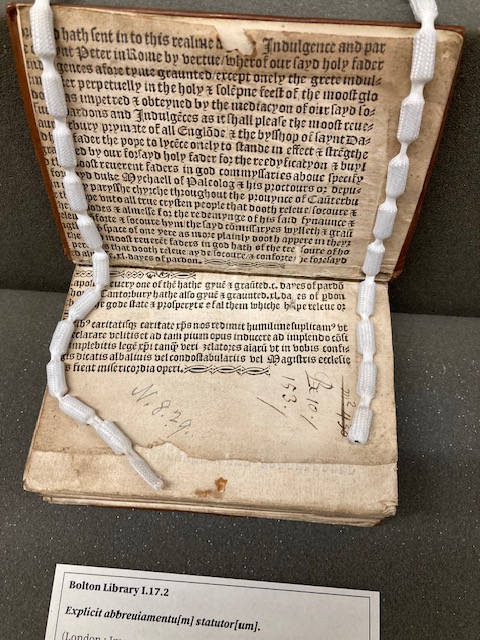 hath sent in to this realme a Indulgence and par
ynt Peter in Rome by vertue wherof our sayd holy fader
gences afore tyme graunted except onely the grete indul-
perpetuelly in the holy & solēpne feest of the moost glo
as impetred & obteyned by the medyacyon of our sayd
pardons and Indulgēces as it shall please the moost reue-
bury prymate of all Englōde, & the bysshop of saynt Da-
fader the pope to lycēce onely to stande in effect & strēgthe
ed by our forsayd holy fader for the reedyficatyon & buyl
moost reuerent faders in god commyssaries aboue specify
yd duke Mychaell of & his proctours or depu-
parysshe chyrche throughout the prouynce of Cāuterbu
vnto all true crysten people that dooth releue socoure &
& almesse for the redemynge of his said fynaunce &
forte & socoure hym the sayd cōmyssaryes wylleth & grau
space of one yere as more plainly dooth appere in theyr
moost reuerēt faders in god hath of the oure of ho
that dooth releue socoure & conforte forsayd
.xl. dayes of pardon.
euery one of thē hathe gyuē & graūted .xl. dayes of pardō
Cantorbury hathe also gyuē & graunted .xl. dayes of pdon
the gode state & prosperyte of al them whiche releue or
caritatisq; caritate xp̄s nos redimit humiline suplicam⁹ vt
velitiset ad tam pium opus inducere ad impendo
legē xp̄i tanq̄ veri zelatores aiarū vt in vobis confi
dicatis albaluis vel condostabulariis vel Magistris ecclesie
fient misericordia operi.
N.8.29.
153.1
Bolton Library I.17.2
Explicit abbreuiamentu[m] statutor[um].
(London :